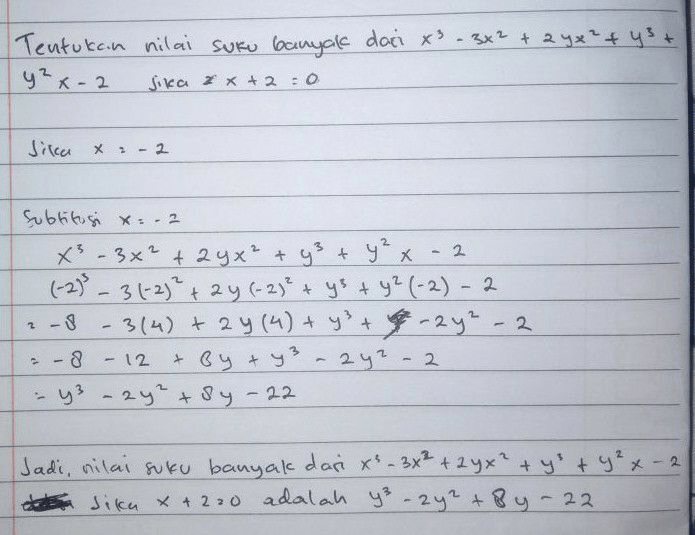 Tentukan nilai suku banyak dari x³ - 3x² + 2yx² + y³ +
y²x - 2 Jika x + 2 = 0
Jika x = -2
Subtitusi x = -2
x³ - 3x² + 2yx² + y³ + y²x - 2
(-2)³ - 3(-2)² + 2y(-2)² + y³ + y²(-2) - 2
= -8 - 3(4) + 2y(4) + y³ + -2y² - 2
= -8 - 12 + 8y + y³ - 2y² - 2
= y³ - 2y² + 8y - 22
Jadi, nilai suku banyak dari x³ - 3x² + 2yx² + y³ + y²x - 2
Jika x + 2=0 adalah y³ - 2y² + 8y - 22